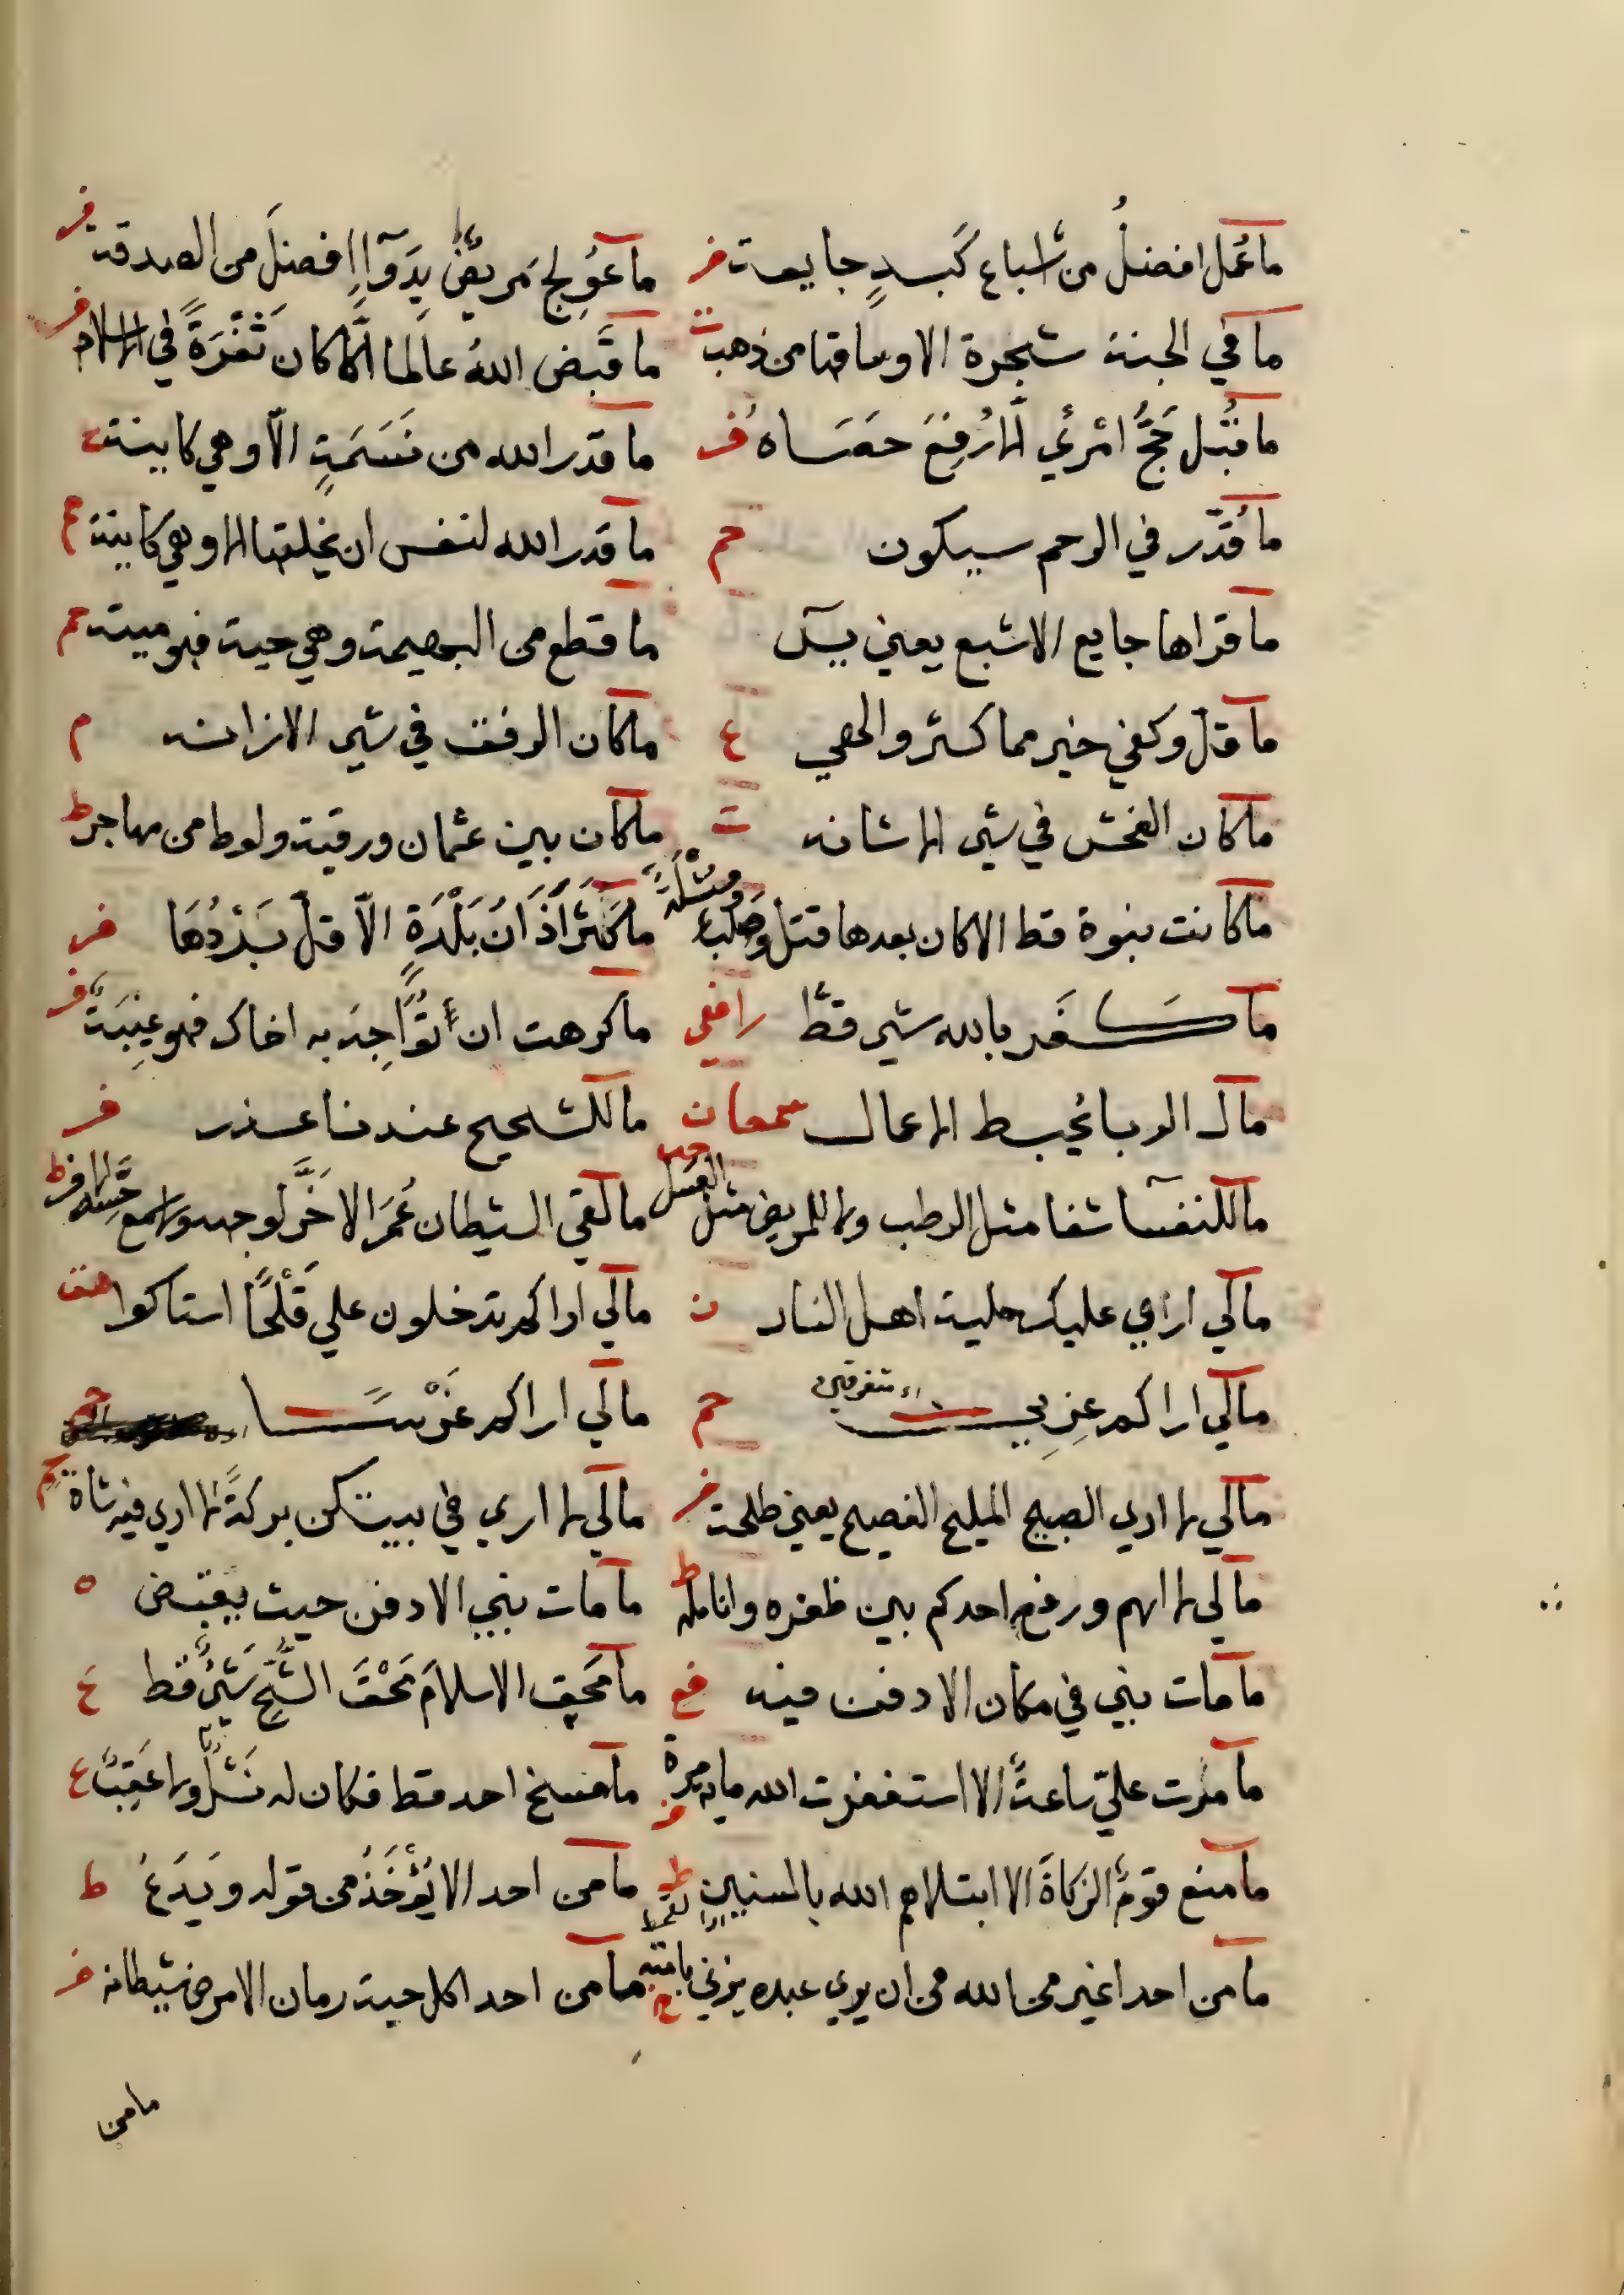 ما عمل افضلُ من اشباع كَبدٍ جايعة فر ما عُولِجَ مَريضٌ بِدَوآاٍ افضلَ من الصدقة فر
ما في الجنة شجرة الا وساقها من ذهب ت ما قَبض اللهُ عالما الّا كان ثَغْرَةً في الاسلام فر
ما قُبل حَجُّ امْرئٍ الا رُفِعَ حَصَاه فر ما قدر الله من نَسَمَةٍ الّا وهي كاينة
ما قُدّر في الرحم سيكون حم ما قدر الله لنفس ان يخلقها الا وهي كاينة
ما قراها جايع الا شبع يعني يسٓ ما قطع من البهيمة وهي حية فهو ميتة حم
ما قل وكفي خير مما كثر والهي ع ما كان الرفق في شي الا زانه م
ما كان الفحش في شي الا شانه ت ما كان بين عثمان ورقية ولوط من مهاجر ط
ما كانت نبوة قط الا كان بعدها قتل وصلب ومُثْلَة ما كَثُرَ اَذَانُ بَلْدَةٍ الّا قلّ بَرْدُهَا فر
ما كَفَر بالله شي قطّ رافعي ما كرهت ان تُوَاجِهَ به اخاك فهو غِيبَة فر
ما ل الربا يُحبط الاعمال سمعان ما للشحيح عندنا عذر فر
ما للنفسا شفا مثل الرطب ولا للمريض مثل العسل ما لقي الشيطان عُمَرَ الا خَرَّ لوجهه ولا سمع حِسّه الا فر ط
ما لي اراي عليك حلية اهل النار ن ما لي اراكم تدخلون علي قُلْحًا استاكوا هق
ما لي اراكم عِزِين اي متفرقين حم ما لي اراكم
ما لي لا اري الصبيح المليح الفصيح يعني طلحة فر ما لي لا اري في بيتكن بركةً لا اري فيه شاة حم
ما لي لا اهم ورفغ احدكم بين ظفره وانامله ط ما مات نبي الا دفن حيث يقبض ه
ما مات نبي في مكان الا دفن فيه ما مَحَق الاسلامَ مَحْقَ الشُّحِّ شَيْءٌ قط ع
ما مرت عليّ ساعةٌ الا استغفرت الله ماية مرة ما مسخ احد قط فكان له نَسْلٌ ولا عَقِبٌ ع
ما منع قومٌ الزكاةَ الا ابتلاهم الله بالسنين ط ما من احد الا يُؤْخَذُ من قوله ويَدَعُ ط
ما من احد اغير من الله من ان يري عبده يزني بامته ما من احد اكل حبة رمان الا مرض شيطانه فر
ما من